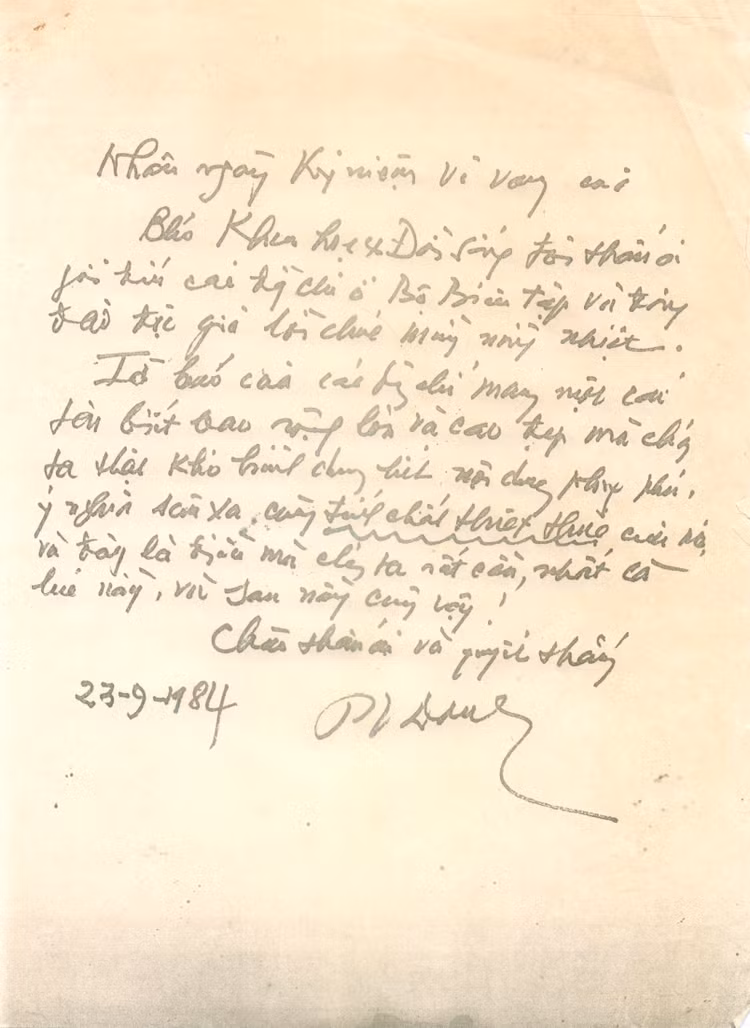 Nhân ngày Kỷ niệm vẻ vang của
Báo Khoa học & Đời sống tôi thân ái
gửi đến các đ/c ở Bộ Biên tập và đông
đảo độc giả lời chúc mừng nồng nhiệt.
Tờ báo của các đ/c mang một cái
tên biết bao rộng lớn và cao đẹp mà chúng
ta thật khó hết nội dung phong phú,
ý nghĩa sâu xa, cùng tính chất thiết thực của nó,
và đây là điều mà chúng ta rất cần, nhất là
lúc này, và sau này cũng vậy!
Chào thân ái và quyết thắng
23-9-1984
PV Đồng